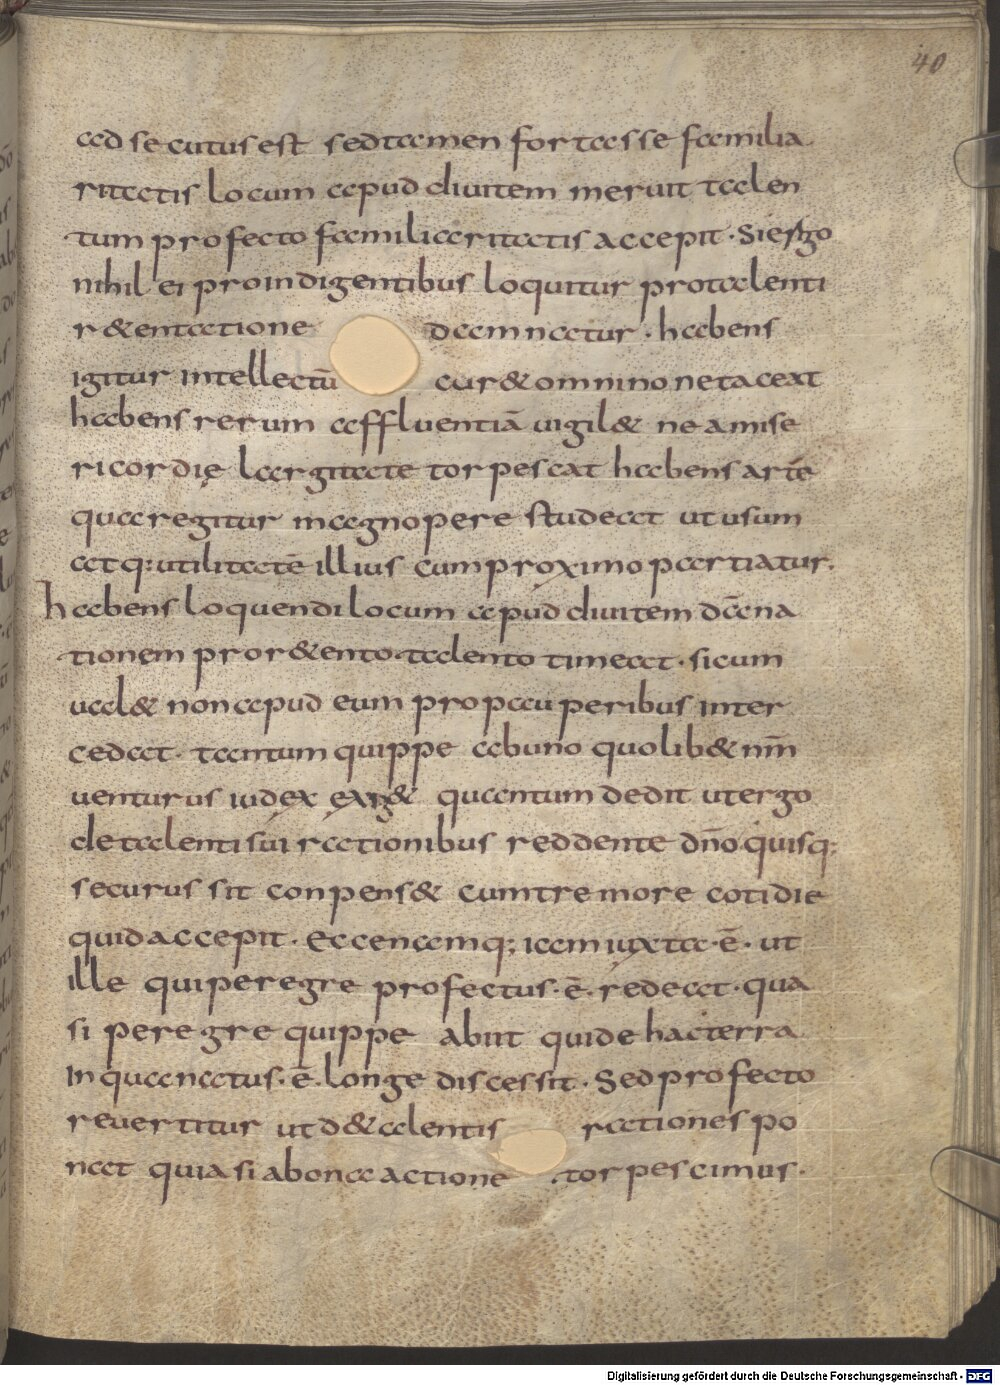 40
adsecutus est sed tamen fortasse familia
ritatis locum apud divitem meruit talen
tum profecto familiaritatis accepit · Si ergo
nihil ei pro indigentibus loquitur pro talenti
r&entatione damnatur · habens
igitur intellectū cur& omnino ne taceat
habens rerum affluentiā vigil& ne a mise
ricordię largitate torpescat habens artē
qua regitur magnopere studeat ut usum
atq: utilitatē illius cum proximo partiatur.
habens loquendi locum apud divitem dāna
tionem pro r&ento talento timeat · si cum
val& non apud eum pro pauperibus inter
cedat · tantum quippe ab uno quolib& nr̄m
venturus iudex exig& quantum dedit ut ergo
de talenti sui rationibus reddente dn̄o quisq:
securus sit conpens& cum tremore cotidie
quid accepit · Ecce namq; iam iuxta · ē · ut
ille qui peregre profectus · ē · redeat · qua
si peregre quippe abiit qui de hac terra
in qua natus · ē · longe discessit · Sed profecto
revertitur ut d& alentis rationes po
nat quia si a bona actione torpescimus ·
Digitalisierung gefördert durch die Deutsche Forschungsgemeinschaft - DFG